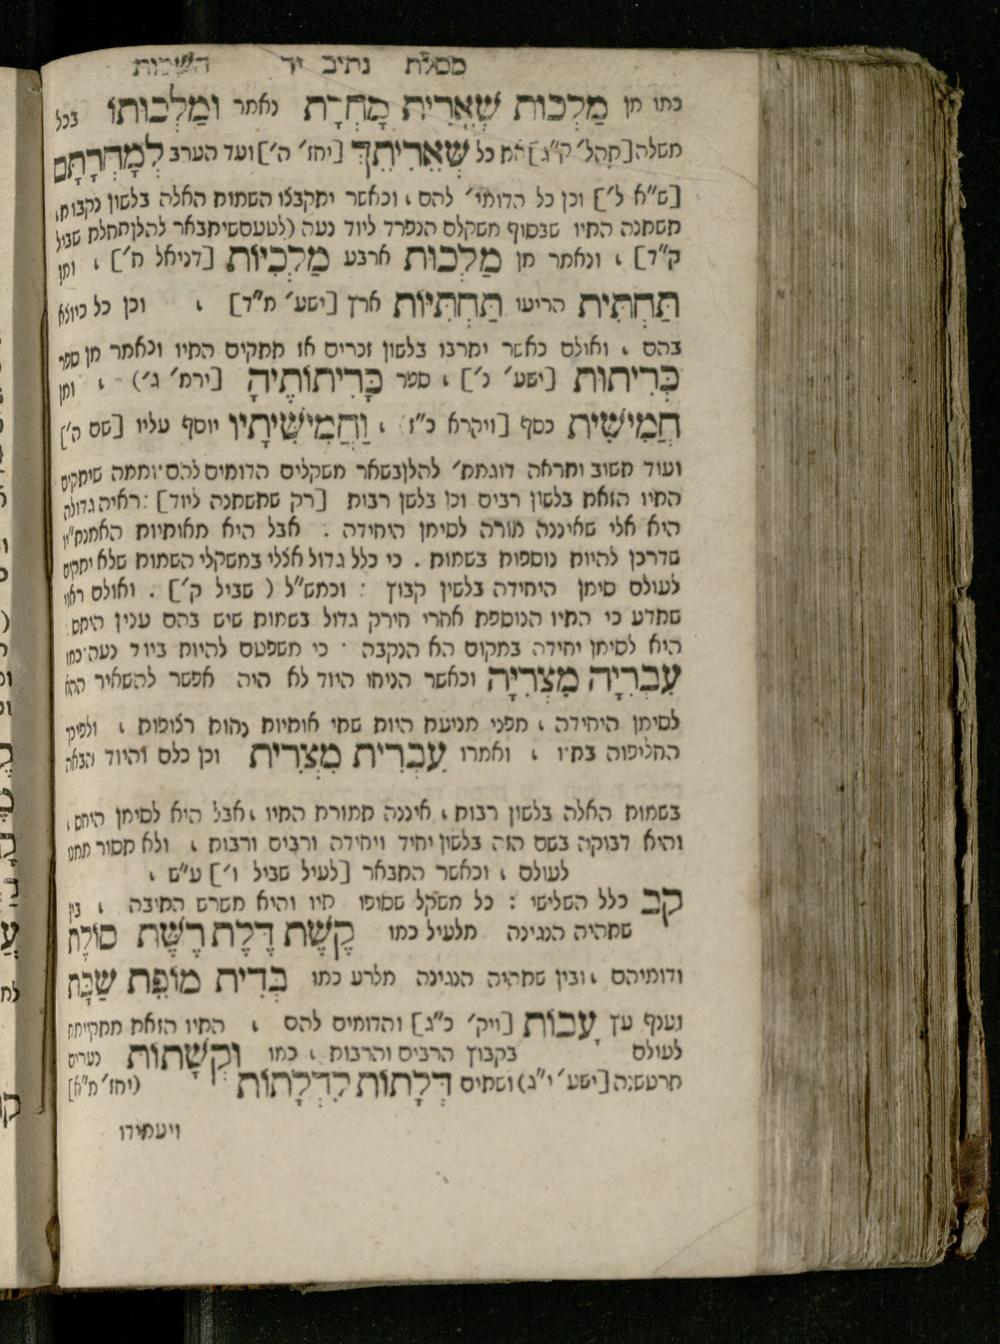 מסלת נתיב יד השמות
כמו מן מַלְכוּת שְׁאֵרִית מָחֳרָת נאמר וּמַלְכוּתוֹ בכל
משלה [תהל׳ ק״ג] את כל שְׁאֵרִיתֵךְ [יחז׳ ה׳] ועד הערב לְמָחֳרָתָם
[ש״א ל׳] וכן כל הדומי׳ להם ، וכאשר יתקבצו השמות האלה בלשון נקבות،
תשתנה התיו שבסוף משקלם הנפרד ליוד נעה (לטעם שיתבאר להלן תחלת שביל
ק״ד] ، ונאמר מן מַלְכוּת ארבע מַלְכִיּוֹת [דניאל ח׳] ، ומן
תַּחְתִּית הריעו תַּחְתִּיּוֹת ארץ [ישע׳ מ״ד] ، וכן כל כיוצא
בהם ، ואולם כאשר יתרבו בלשון זכרים אז תתקים התיו ונאמר מן ספר
כְּרִיתוּת [ישע׳ נ׳] ، ספר כְּרִיתוּתֶיהָ [ירמ׳ ג׳) ، ומן
חֲמִישִׁית כסף [ויקרא כ״ז] ، וַחֲמִישִׁיתָיו יוסף עליו [שם ה׳]
ועוד תשוב ותראה דוגמת׳ להלן בשאר משקלים הדומים להם וממה שיתקים
התיו הזאת בלשון רבים וכו בלשן רבות [רק שתשתנה ליוד] : ראיה גדולה
היא אלי שאיננה מורה לסימן היחידה . אבל היא מאותיות האמנת״יו
שדרכן להיות נוספות בשמות . כי כלל גדול אצלי במשקלי השמות שלא יתקים
לעולם סימן היחידה בלשין קבוץ : וכמש״ל ( שביל ק׳] . ואולם ראוי
שתדע כי התיו הנוספת אחרי חירק גדול בשמות שיש בהם ענין היחס
היא לסימן יחידה במקום הא הנקבה · כי משפטם להיות ביוד נעה כמו
עִבְרִיָּה מִצְרִיָּה וכאשר הניחו היוד לא היה אפשר להשאיר ההא
לסימן היחידה ، מפני מניעת היות שתי אותיות נחות רצופות ، ולפיכך
החליפוה בתיו ، ואמרו עִבְרִית מִצְרִית וכן כלם והיוד הבאה
בשמות האלה בלשון רבות ، איננה תמורת התיו ، אבל היא לסימן היחס ،
והיא דבוקה בשם הזה בלשון יחיד ויחידה ורבים ורבות ، ולא תסור ממנו
לעולם ، וכאשר התבאר [לעיל שביל ו׳] ע״ש ،
קב כלל השלישי : כל משקל שסופו תיו והיא משרש התיבה ، בין
שתהיה הנגינה מלעיל כמו קֶשֶׁת דֶּלֶת רֶשֶׁת סוֹלֶת
ודומיהם ، ובין שתהיה הנגינה מלרע כמו בְּרִית מוֹפֵת שַׁבָּת
וענף עץ עָבוֹת [ויק׳ כ״ג] והדומים להם ، התיו הזאת תתקיימת
לעולם בקבוץ הרבים והרבות ، כמו וּקְשָׁתוֹת נערים
תרטשנה [ישע׳ י״ג) ושתים דְּלָתוֹת לַדְּלָתוֹת (יחז׳ מ״א]
ויעמידו